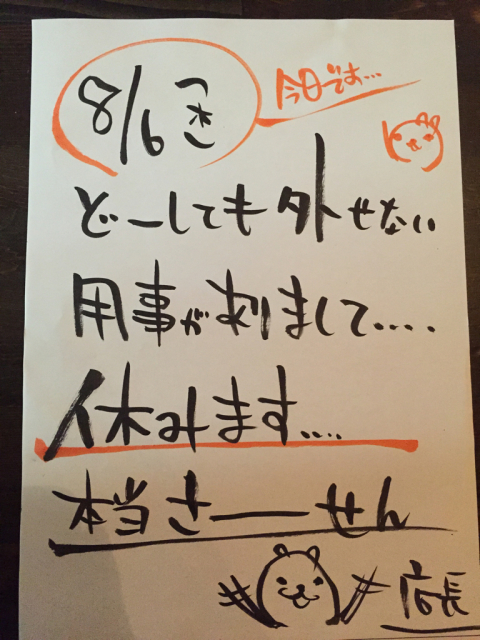 8/6 つき
今日です…
どーしても外せない
用事がありまして....
休みます....
本当さーーせん
店長